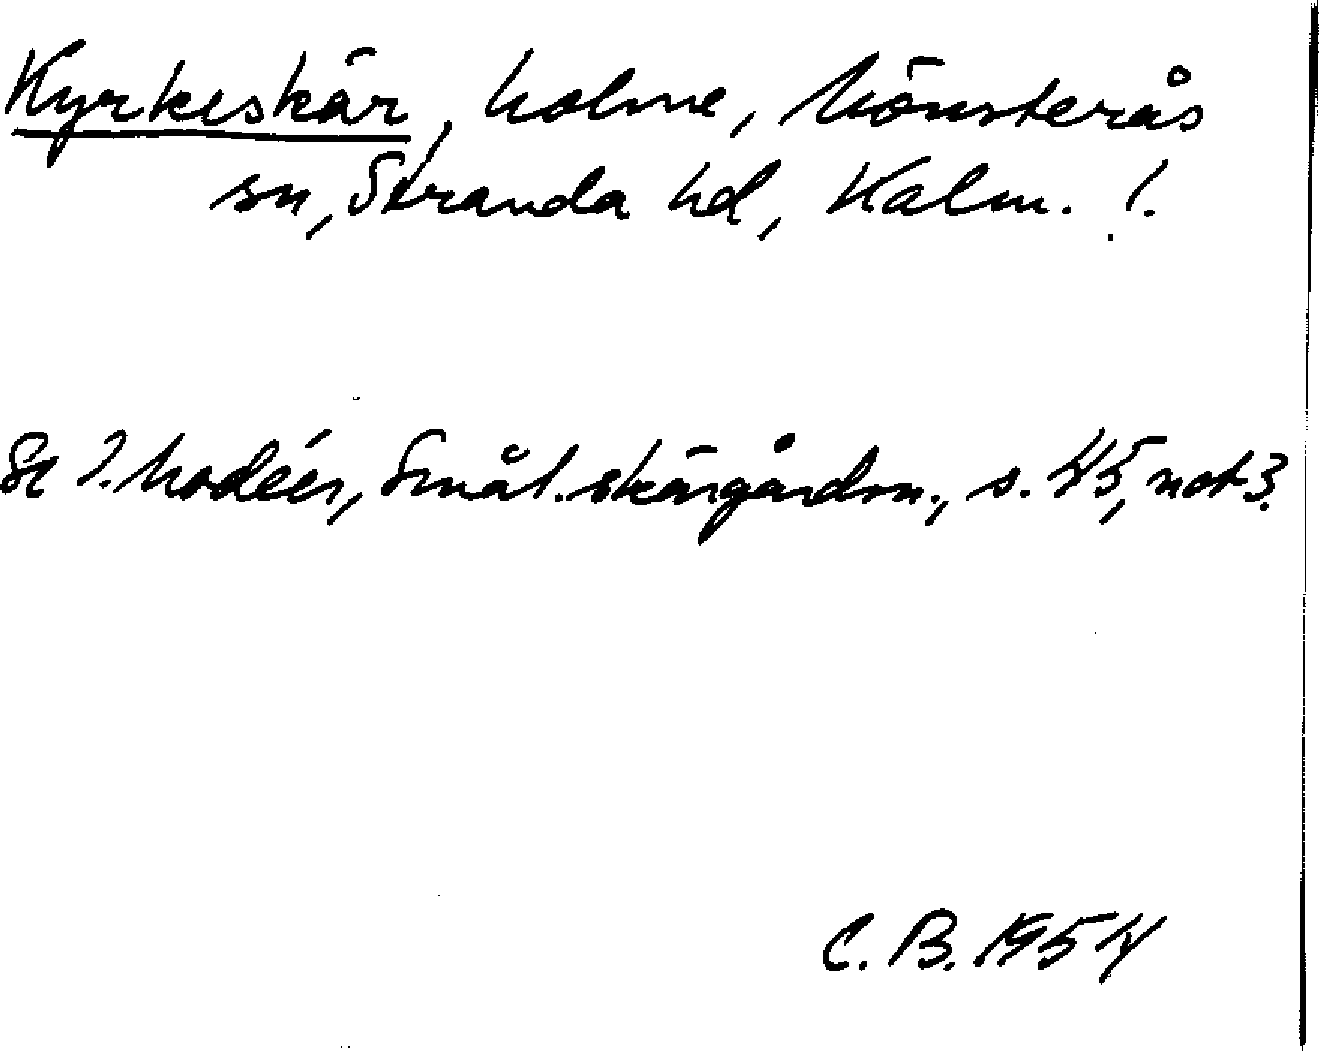 Kyrkeskär, holme, Mönsterås
sn, Stranda hd, Kalm. !.
Se I. Modéer, Smål. skärgårdsn., s. 45, not 3.
C. B. 1954